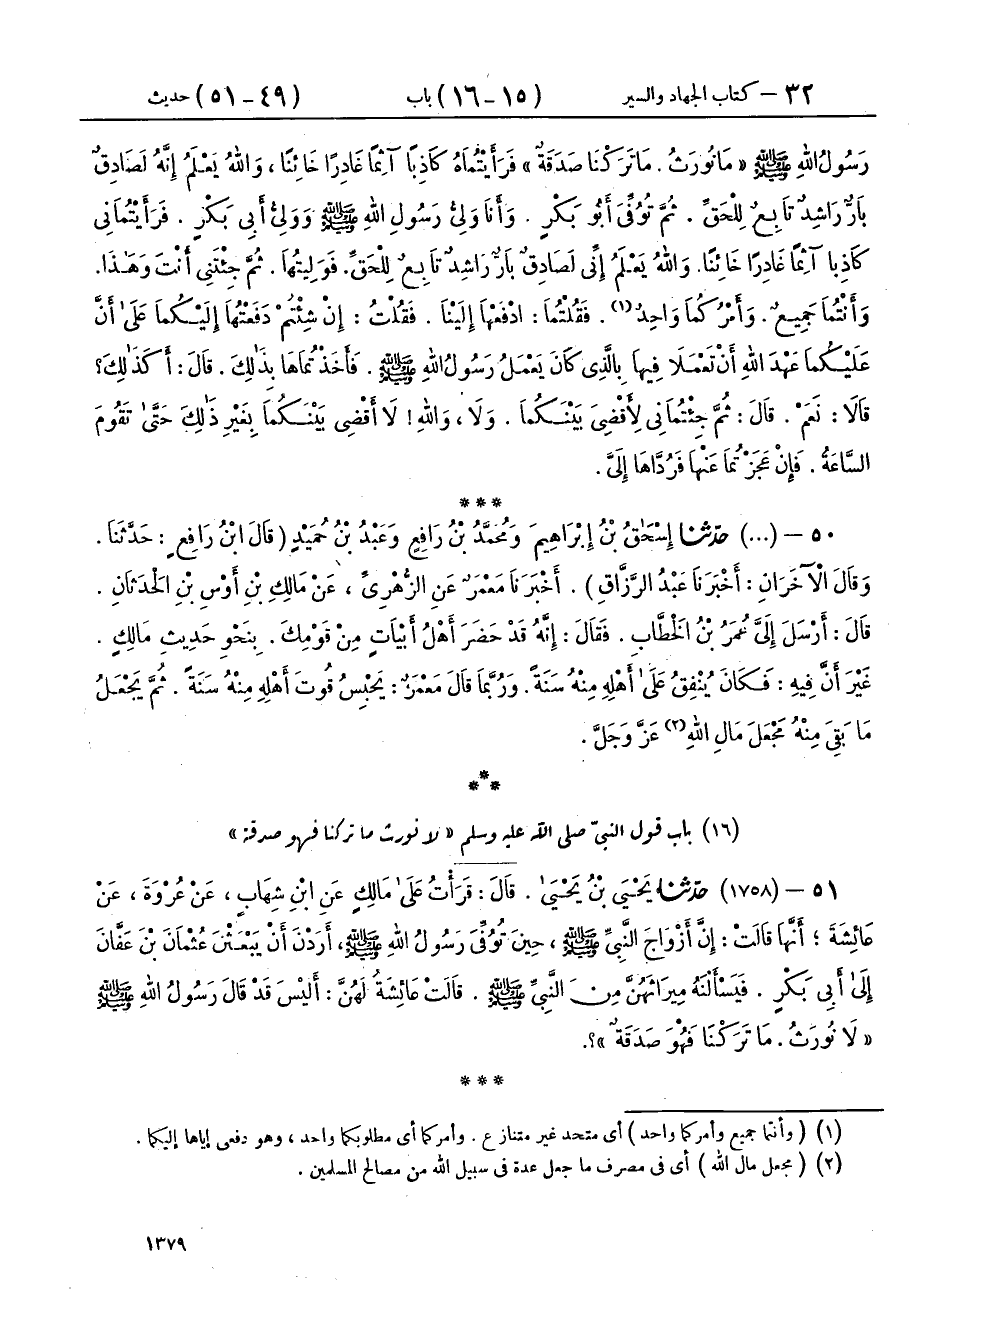 ٣٢ – كتاب الجهاد والسير (١٥ – ١٦) باب (٤٩ – ٥١) حديث
رَسُولُ اللهِ ﷺ « مَا نُورَثُ . مَا تَرَكْنَا صَدَقَةٌ » فَرَأَيْتُمَاهُ كَاذِبًا آثِمًا غَادِرًا خَائِنًا ، وَاللهُ يَعْلَمُ إِنَّهُ لَصَادِقٌ
بَارٌّ رَاشِدٌ تَابِعٌ لِلْحَقِّ . ثُمَّ تُوُفِّىَ أَبُو بَكْرٍ . وَأَنَا وَلِىُّ رَسُولِ اللهِ ﷺ وَوَلِىُّ أَبِى بَكْرٍ . فَرَأَيْتُمَانِى
كَاذِبًا آثِمًا غَادِرًا خَائِنًا. وَاللهُ يَعْلَمُ إِنِّى لَصَادِقٌ بَارٌّ رَاشِدٌ تَابِعٌ لِلْحَقِّ. فَوَلِيتُهَا . ثُمَّ جِئْتَنِى أَنْتَ وَهَٰذَا.
وَأَنْتُمَا جَمِيعٌ. وَأَمْرُكُمَا وَاحِدٌ(١) . فَقُلْتُمَا : ادْفَعْهَا إِلَيْنَا . فَقُلْتُ : إِنْ شِئْتُمْ دَفَعْتُهَا إِلَيْكُمَا عَلَىٰ أَنَّ
عَلَيْكُمَا عَهْدَ اللهِ أَنْ تَعْمَلَا فِيهَا بِالَّذِى كَانَ يَعْمَلُ رَسُولُ اللهِ ﷺ . فَأَخَذْتُمَاهَا بِذَٰلِكَ . قَالَ : أَكَذَٰلِكَ؟
قَالَا : نَعَمْ . قَالَ : ثُمَّ جِئْتُمَانِى لِأَقْضِىَ بَيْنَكُمَا . وَلَا ، وَاللهِ ! لَا أَقْضِى بَيْنَكُمَا بِغَيْرِ ذَٰلِكَ حَتَّىٰ تَقُومَ
السَّاعَةُ . فَإِنْ عَجَزْتُمَا عَنْهَا فَرُدَّاهَا إِلَىَّ .
***
٥٠ – (...) حَدَّثَنَا إِسْحَاقُ بْنُ إِبْرَاهِيمَ وَمُحَمَّدُ بْنُ رَافِعٍ وَعَبْدُ بْنُ حُمَيْدٍ ( قَالَ ابْنُ رَافِعٍ : حَدَّثَنَا .
وَقَالَ الْآخَرَانِ : أَخْبَرَنَا عَبْدُ الرَّزَّاقِ ) . أَخْبَرَنَا مَعْمَرٌ عَنِ الزُّهْرِىِّ ، عَنْ مَالِكِ بْنِ أَوْسِ بْنِ الْحَدَثَانِ .
قَالَ : أَرْسَلَ إِلَىَّ عُمَرُ بْنُ الْخَطَّابِ . فَقَالَ : إِنَّهُ قَدْ حَضَرَ أَهْلُ أَبْيَاتٍ مِنْ قَوْمِكَ . بِنَحْوِ حَدِيثِ مَالِكٍ .
غَيْرَ أَنَّ فِيهِ : فَكَانَ يُنْفِقُ عَلَىٰ أَهْلِهِ مِنْهُ سَنَةً . وَرُبَّمَا قَالَ مَعْمَرٌ : يَحْبِسُ قُوتَ أَهْلِهِ مِنْهُ سَنَةً . ثُمَّ يَجْعَلُ
مَا بَقِىَ مِنْهُ مَجْعَلَ مَالِ اللهِ(٢) عَزَّ وَجَلَّ .
***
(١٦) باب قول النبىّ صلى الله عليه وسلم « لا نورث ما تركنا فهو صدقة »
٥١ – (١٧٥٨) حَدَّثَنَا يَحْيَىٰ بْنُ يَحْيَىٰ . قَالَ : قَرَأْتُ عَلَىٰ مَالِكٍ عَنِ ابْنِ شِهَابٍ ، عَنْ عُرْوَةَ ، عَنْ
عَائِشَةَ ؛ أَنَّهَا قَالَتْ : إِنَّ أَزْوَاجَ النَّبِىِّ ﷺ ، حِينَ تُوُفِّىَ رَسُولُ اللهِ ﷺ، أَرَدْنَ أَنْ يَبْعَثْنَ عُثْمَانَ بْنَ عَفَّانَ
إِلَىٰ أَبِى بَكْرٍ . فَيَسْأَلْنَهُ مِيرَاثَهُنَّ مِنَ النَّبِىِّ ﷺ . قَالَتْ عَائِشَةُ لَهُنَّ : أَلَيْسَ قَدْ قَالَ رَسُولُ اللهِ ﷺ
« لَا نُورَثُ . مَا تَرَكْنَا فَهُوَ صَدَقَةٌ »؟.
***
(١) ( وأنتما جميع وأمركما واحد ) أى متحد غير متنازع . وأمركما أى مطلوبكما واحد ، وهو دفعى إياها إليكما .
(٢) ( مجعل مال الله ) أى فى مصرف ما جعل عدة فى سبيل الله من مصالح المسلمين .
١٣٧٩